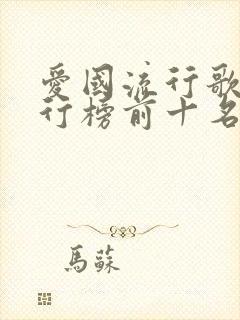 愛國流行歌
行榜前十名
馬蘇